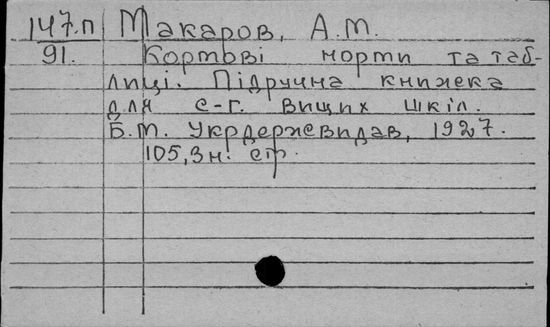 147.п Макаров, А.М.
91. Кормові норми та таб-
лиці. Підручна книжека
для с-г. вищих шкіл.
Б.М. Укрдержевидав, 1927.
105,3н. стр.